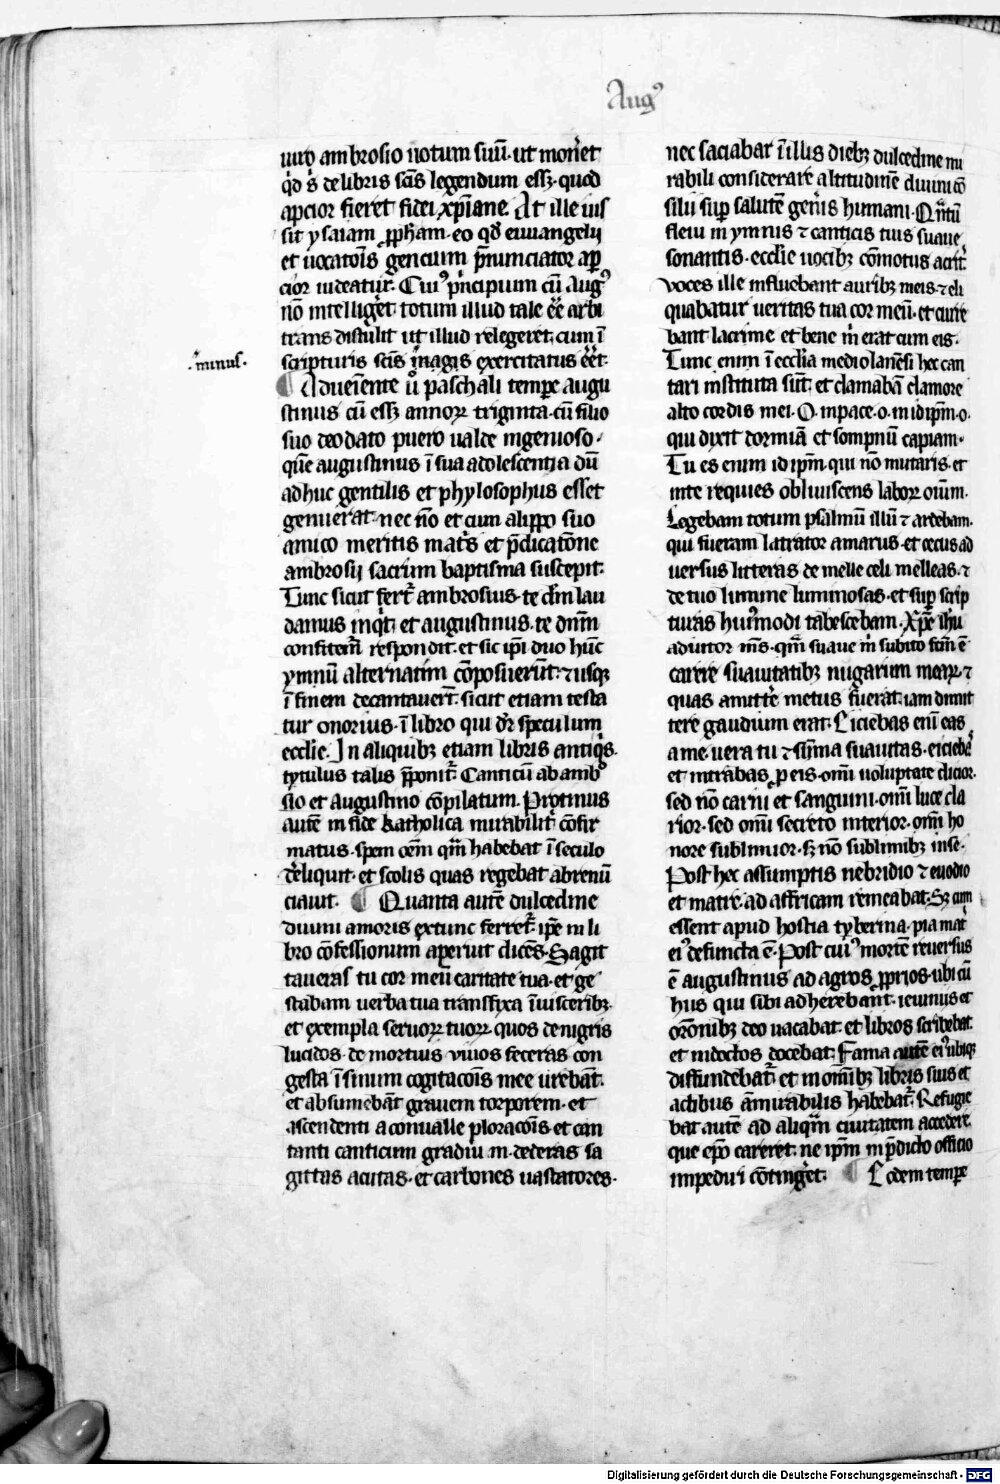 Augꝰ
uiro ambrosio uotum suū. ut monˀet
qͥd ẜ de libris scīs legendum essꝫ. quod
apcior fieret fidei xp̄iane. At ille ius
sit ysaiam ꝓpham. eo qđ euuangelij
et uocatōis gencium p̄nunciator ap
cior uideatur. Cuiꝰ pͥncipium cū Augꝰ
nōn intelligˀet totum illud tale eē arbi
trans distulit ut illud relegeret. cum ī
.minus.
scripturis scīs magis exercitatus eēt.
Adueniente ū paschali tempe augu
stinus cū essꝫ annoꝝ triginta. cū filio
suo deodato puero ualde ingenioso.
quē augustinus ī sua adolescentia dū
adhuc gentilis et phylosophus esset
genuerat. nec nō et cum alippo suo
amico meritis matˀs et p̄dicatōne
ambrosij sacrum baptisma suscepit.
Tunc sicut fert̄ ambrosius. te dm̄ lau
damus inqͥt. et augustinus. te dn̄m
confitem̄ respondit. et sic ip̄i duo hūc
ymnū alternatim cōposuerūt. ⁊ usqꝫ
ī finem decantauert̄. sicut etiam testa
tur onorius. ī libro qui dr̄ speculum
ecclīe. In aliquibꝫ etiam libris antiqͥs.
tytulus talis p̄ponit̄. Canticū ab ambͦ
sio et augustino cōpilatum. Protinus
autē in fide katholica mirabilit̄ cōfir
matus. spem oēm qͣm habebat ī seculo
dˀeliquit. et scolis quas regebat abrenū
ciauit. Quanta autē dulcedine
diuini amoris extunc ferret̄ ip̄e in li
bro cōfessionum aperuit dicēs. Sagit
taueras tu cor meū caritate tua. et ge
stabam uerba tua transfixa ī uisceribꝫ.
et exempla seruoꝝ tuoꝝ. quos de nigris
lucidos. de mortuis viuos feceras con
gesta ī sinum cogitacōis mee urebāt.
et absumebāt grauem torporem. et
ascendenti a conualle ploracōis et can
tanti canticum graduū. dederas sa
gittas acutas. et carbones uastatores.
nec saciabar ī illis diebꝫ dulcedine mi
rabili considerare altitudinē diuini cō
silii sup salutē genˀis humani. Qͣntū
fleui in ymnis ⁊ canticis tuis suaue
sonantis. ecclīe uocibꝫ cōmotus acrit̄.
voces ille influebant auribꝫ meis. ⁊ eli
quabatur ueritas tua cor meū. et curre
bant lacrime et bene m̄ erat cum eis.
Tunc enim ī ecclīa mediolanēsi hec can
tari instituta sūt. et clamabā clamore
alto cordis mei. O. in pace. o. in idip̄m. o.
qui dixit dormiā et sompnū capiam.
Tu es enim idip̄m. qui nō mutaris. et
in te requies obliuiscens laboꝝ oīum.
Legebam totum psalmū illū ⁊ ardebam.
qui fueram latrator amarus. et cecus ad
uersus litteras de melle celi melleas. ⁊
de tuo lumine luminosas. et sup scrip
turas huiꝰmodi tabescebam. Xp̄e ihū
adiutor mīs. qm̄ suaue m̄ subito fctm̄ ē
carere suauitatibꝫ nugarum meaꝝ. ⁊
quas amittˀe metus fuerat. iam dimit
tere gaudium erat. Eiciebas enī eas
a me. uera tu ⁊ sūma suauitas. eiciebas
et intrabas p eis. omī uoluptate dulcior.
sed nō carni et sanguini. omī luce cla
rior. sed omī secreto interior. omī ho
nore sublimior. sꝫ nō sublimibꝫ in se.
Post hec assumptis nebridio ⁊ euodio
et matre. ad affricam remeabat. Sꝫ cum
essent apud hostia tyberina. pia mat̄
eiꝰ defuncta ē. Post cuiꝰ mortē reuersus
ē augustinus ad agros ꝓprios. ubi cū
hus qui sibi adherebant. ieiuniis et
orōnibꝫ deo uacabat. et libros scribebat.
et indoctos docebat. Fama autē eiꝰ ubiqꝫ
diffundebat̄. et in omībꝫ libris suis et
actibus āmirabilis habebat̄. Refugie
bat autē ad aliqͣm ciuitatem accedere.
que ep̄o careret. ne ip̄m in p̄dicto officio
impediri cōtingˀet. Eodem tempe